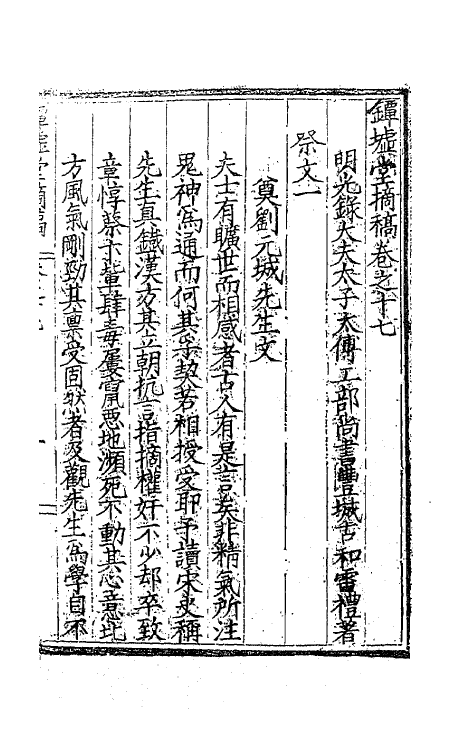 鐔墟堂摘稿卷之十七
明光錄大夫太子太傅工部尚書豐城古和雷禮著
祭文一
奠劉元城先生文
夫士有曠世而相感者古人有是言矣非精氣所注
鬼神為通而何其宗契若相授受耶予讀宋史稱
先生真鐵漢方其立朝抗言指摘權奸不少却卒致
章惇蔡卞輩肆毒屢竄惡地瀕死不動其心意北
方風氣剛勁其稟受固然者及觀先生為學自不